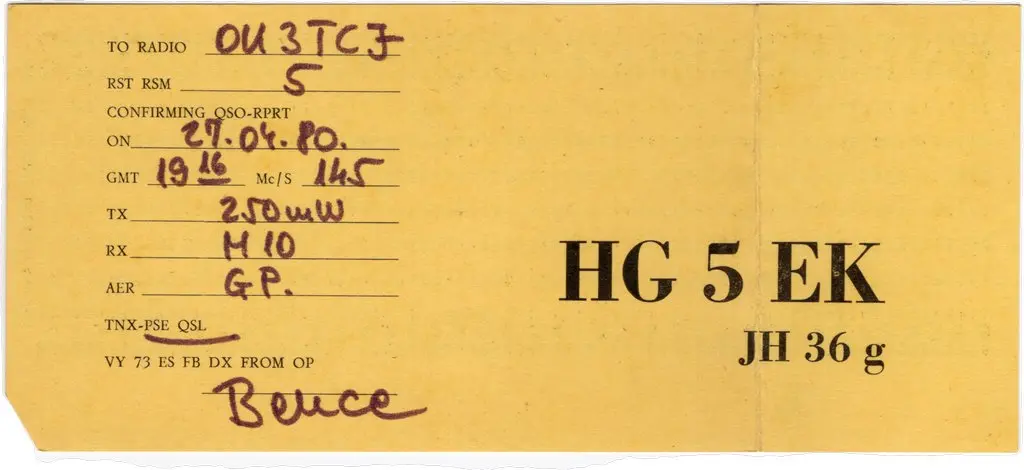 TO RADIO OK3TCJ
RST RSM 5
CONFIRMING QSO-RPRT
ON 27.04.80.
GMT 19 16 Mc/S 145
TX 250mW
RX M 10
AER GP.
TNX-PSE QSL
VY 73 ES FB DX FROM OP
Bence
HG 5 EK
JH 36 g